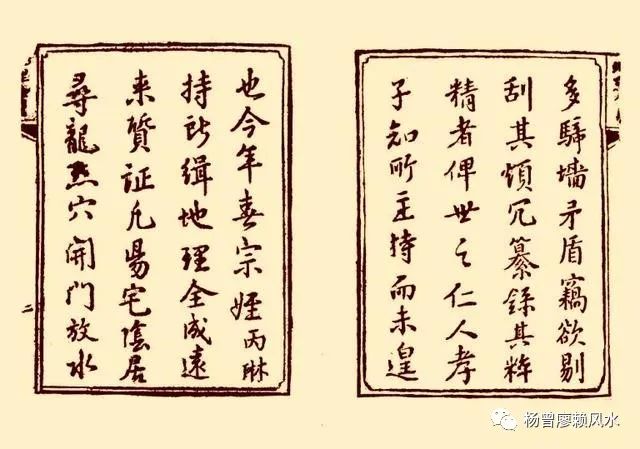 多騎墻矛盾竊欲剔
刮其煩冗纂錄其粹
精者俾世之仁人孝
子知所主持而未遑
也今年春宗姪丙琳
持所緝地理全成遠
来質証凡陽宅陰居
尋龍点穴開門放水
二
杨曾廖赖风水